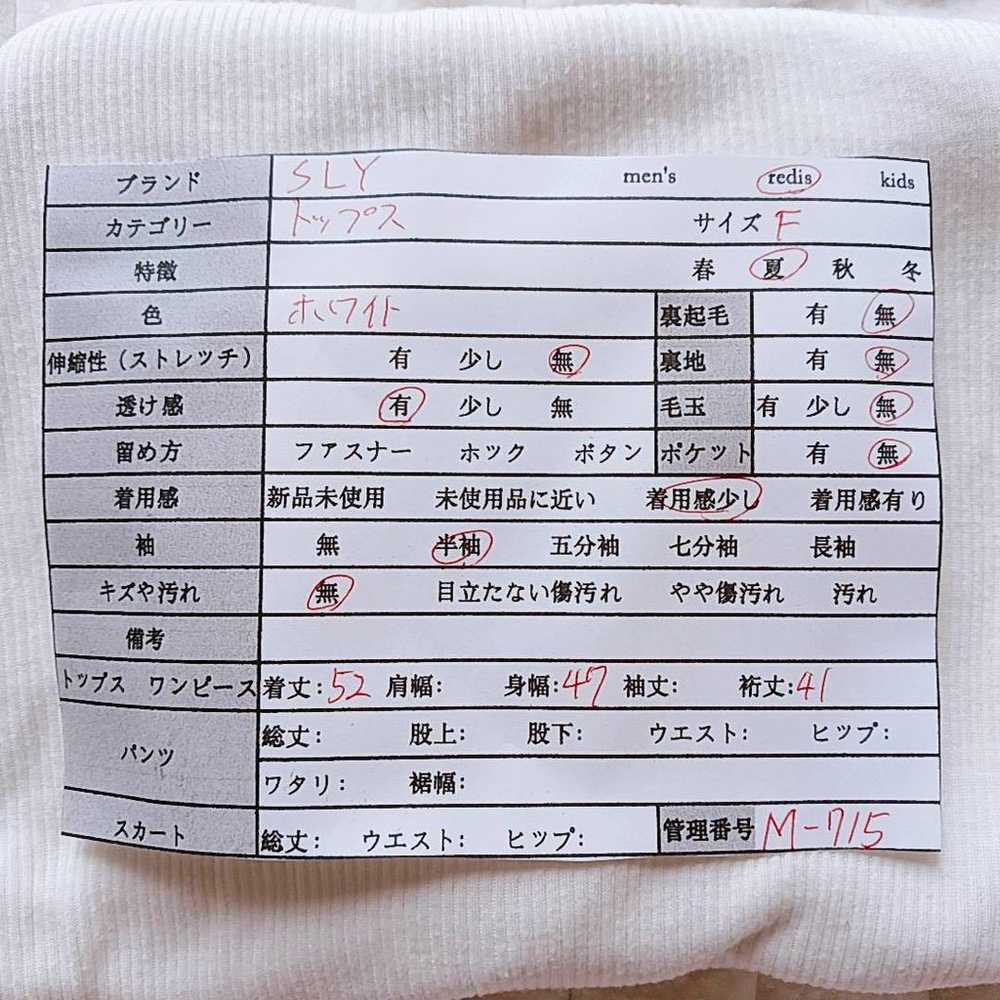 ブランド SLY men's redis kids
カテゴリー トップス サイズ F
特徴 春 夏 秋 冬
色 ホワイト 裏起毛 有 無
伸縮性（ストレッチ） 有 少し 無 裏地 有 無
透け感 有 少し 無 毛玉 有 少し 無
留め方 ファスナー ホック ボタン ポケット 有 無
着用感 新品未使用 未使用品に近い 着用感少し 着用感有り
袖 無 半袖 五分袖 七分袖 長袖
キズや汚れ 無 目立たない傷汚れ やや傷汚れ 汚れ
備考
トップス ワンピース 着丈：52 肩幅： 身幅：47 袖丈： 裄丈：41
パンツ 総丈： 股上： 股下： ウエスト： ヒップ：
ワタリ： 裾幅：
スカート 総丈： ウエスト： ヒップ： 管理番号 M-715